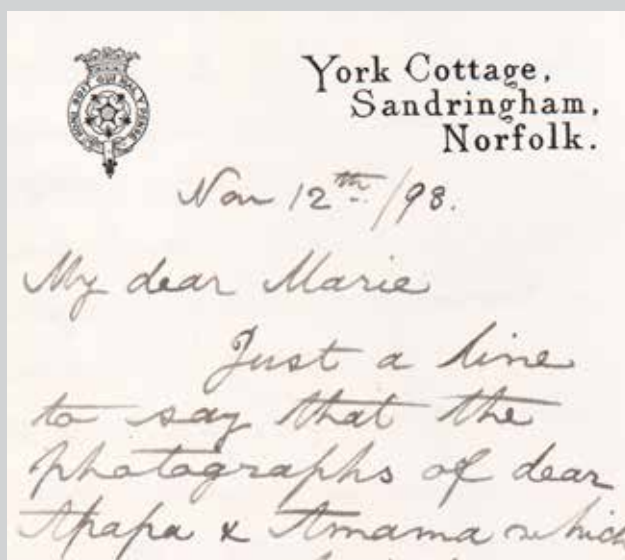 York Cottage,
Sandringham,
Norfolk.
Nov 12th./98.
My dear Marie
Just a line
to say that the
photographs of dear
Apapa & Amama which